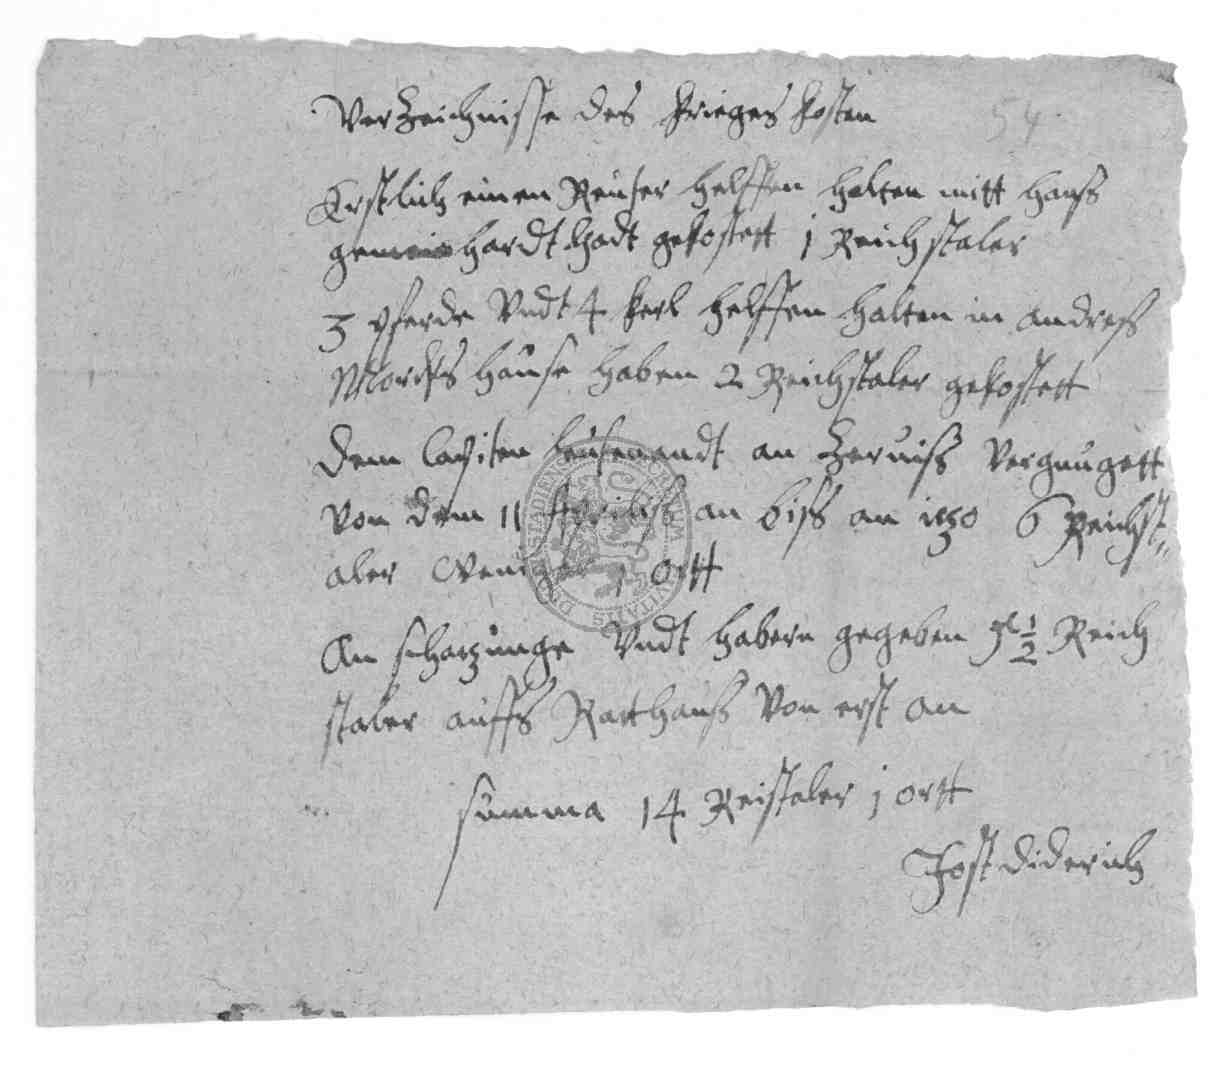 Verzeichnisse des krieges kosten
54
Erstlich einen Reuser helffen halten mitt hanss
gemeinhardt hadt gekostett 1 Reichstaler
3 pferde Vndt 4 kerl helffen halten in andress
Mordts hause haben 2 Reichstaler gekostett
dem capiten leutenandt an zerviss vergnugett
von dem 11 Aprilis an biss an itzo 6 Reichst„
aler weniger 1 ortt
An schatzunge Vndt habern gegeben 5 1/2 Reich
staler auffs Ratthauss Von erst an
summa 14 Reistaler 1 ortt
Jost diderich